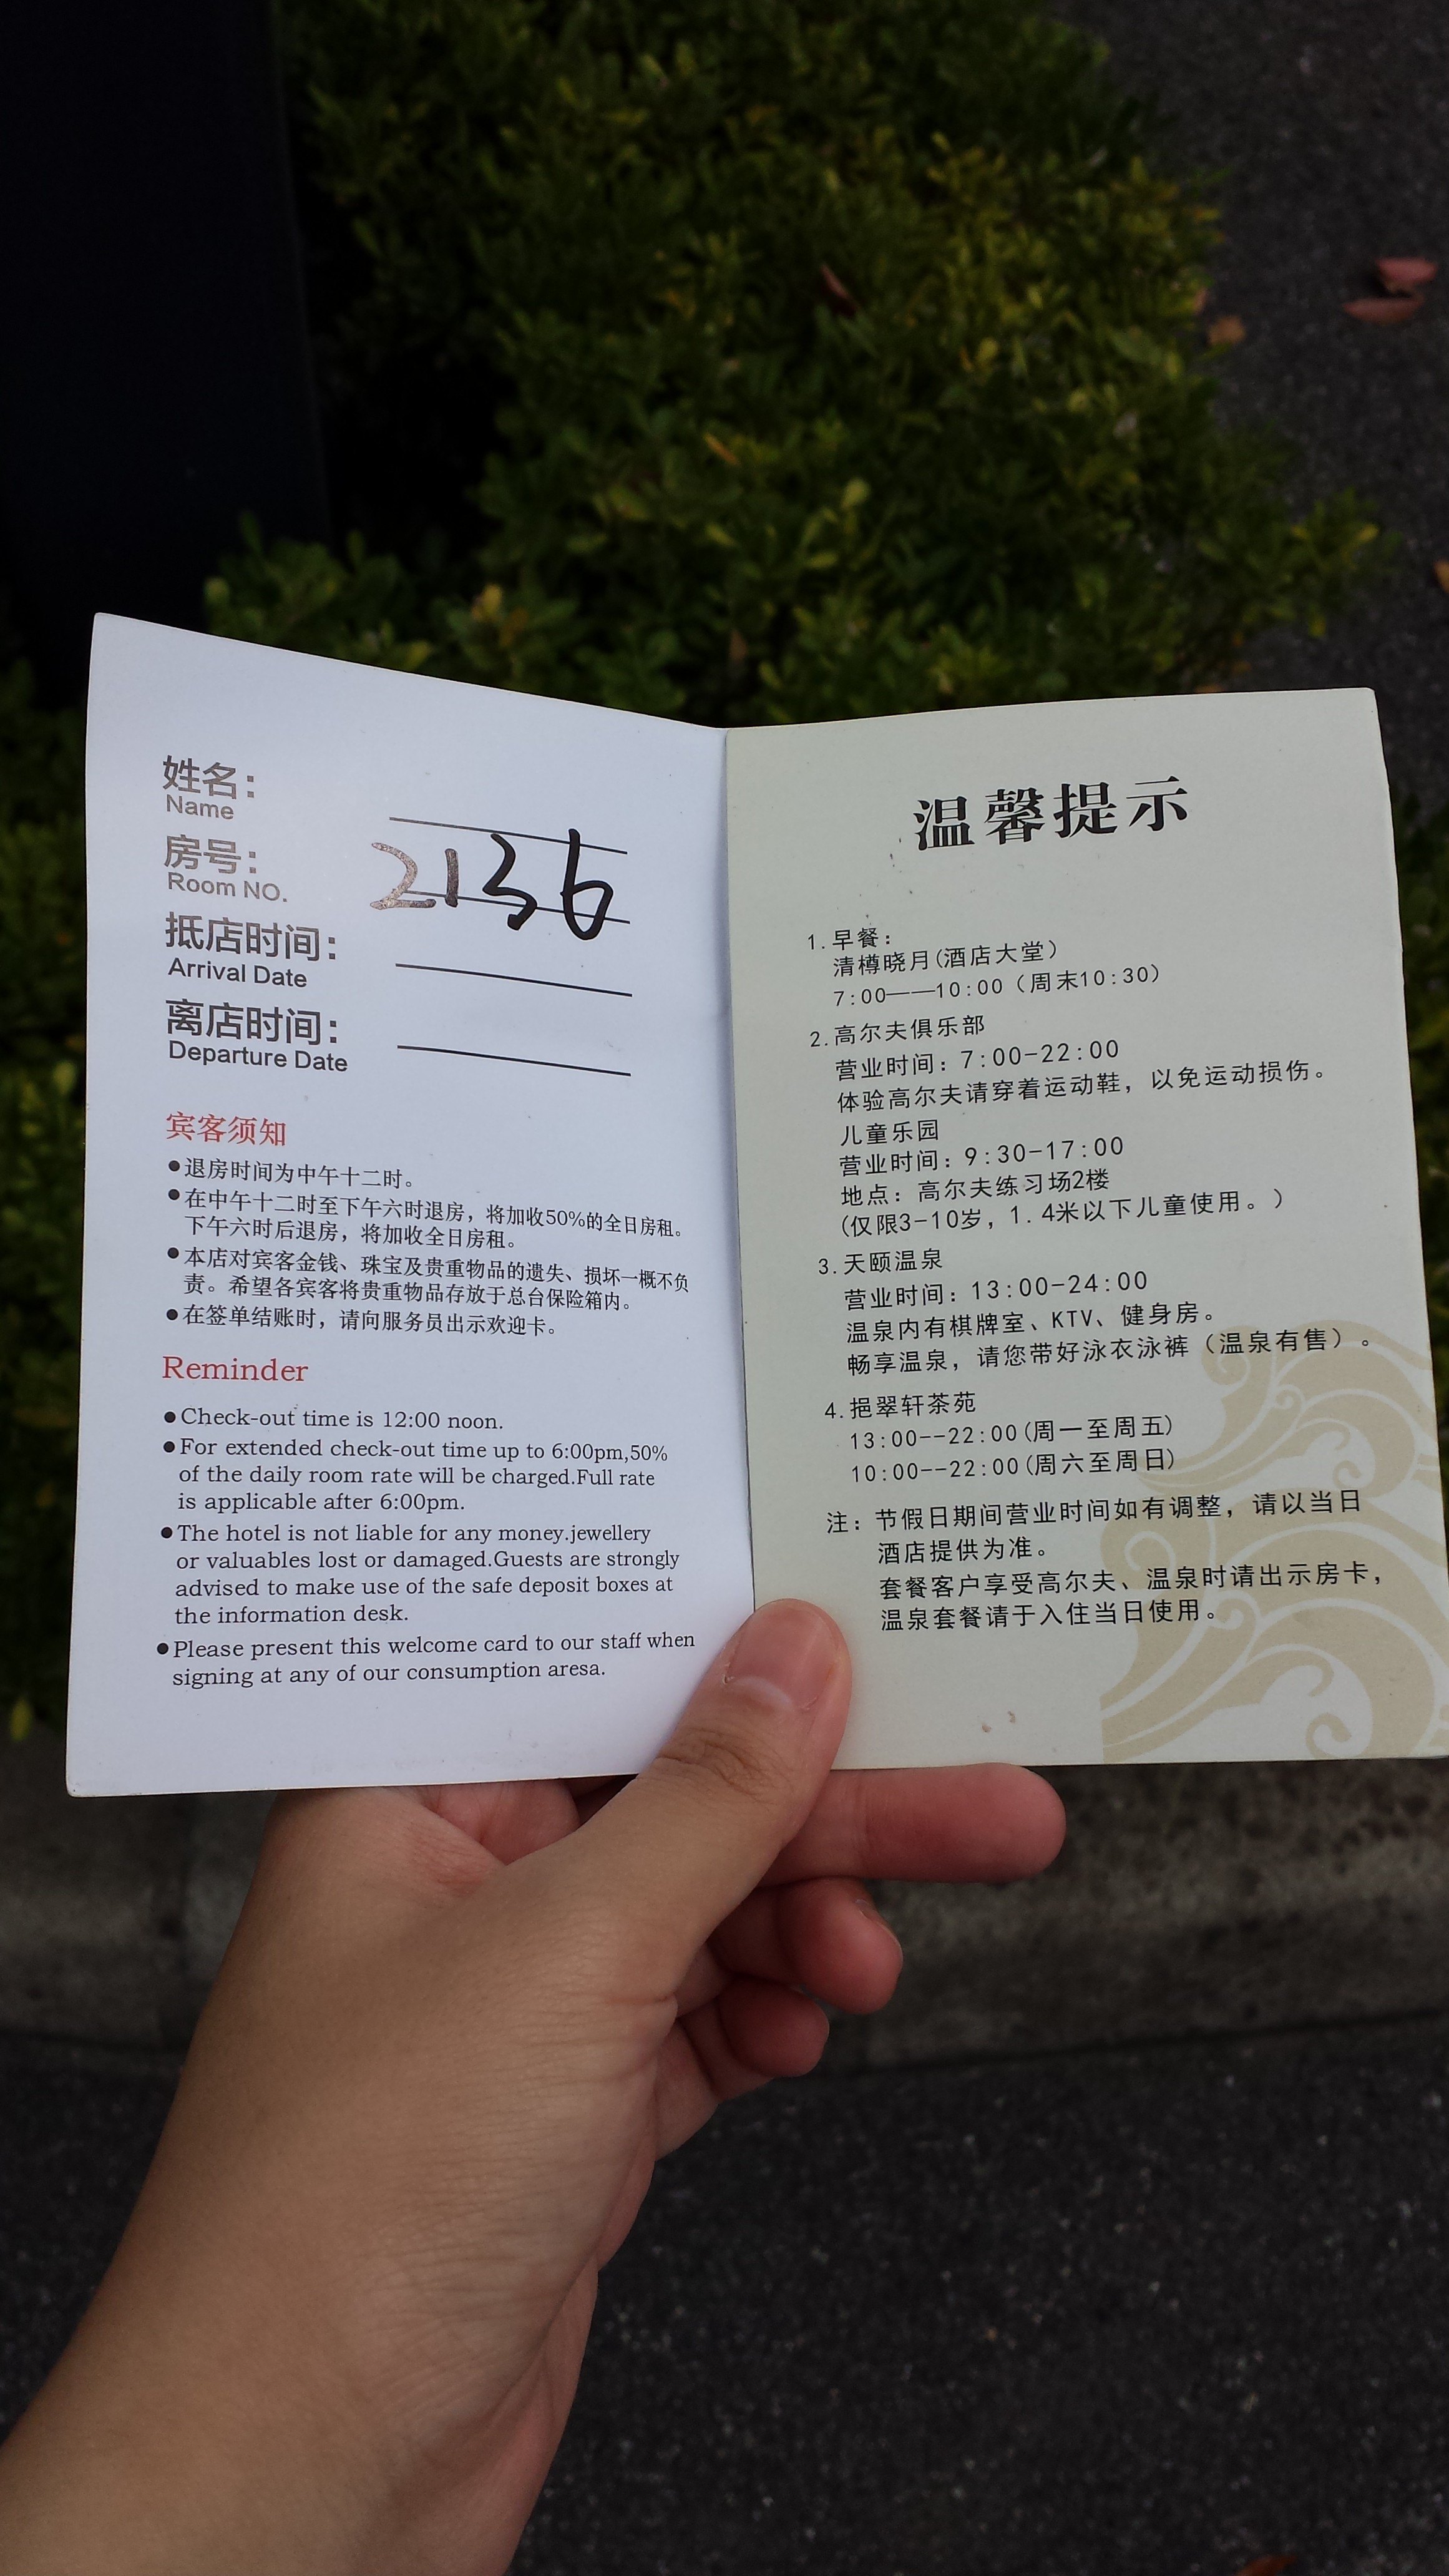 姓名：
Name
房号：
Room NO.
2136
抵店时间：
Arrival Date
离店时间：
Departure Date
宾客须知
●退房时间为中午十二时。
●在中午十二时至下午六时退房，将加收50%的全日房租。
下午六时后退房，将加收全日房租。
●本店对宾客金钱、珠宝及贵重物品的遗失、损坏一概不负
责。希望各宾客将贵重物品存放于总台保险箱内。
●在签单结账时，请向服务员出示欢迎卡。
Reminder
●Check-out time is 12:00 noon.
●For extended check-out time up to 6:00pm,50%
of the daily room rate will be charged.Full rate
is applicable after 6:00pm.
●The hotel is not liable for any money.jewellery
or valuables lost or damaged.Guests are strongly
advised to make use of the safe deposit boxes at
the information desk.
●Please present this welcome card to our staff when
signing at any of our consumption aresa.
温馨提示
1.早餐：
清樽晓月(酒店大堂）
7:00——10:00（周末10:30）
2.高尔夫俱乐部
营业时间：7:00-22:00
体验高尔夫请穿着运动鞋，以免运动损伤。
儿童乐园
营业时间：9:30-17:00
地点：高尔夫练习场2楼
(仅限3-10岁，1.4米以下儿童使用。）
3.天颐温泉
营业时间：13:00-24:00
温泉内有棋牌室、KTV、健身房。
畅享温泉，请您带好泳衣泳裤（温泉有售）。
4.挹翠轩茶苑
13:00--22:00(周一至周五)
10:00--22:00(周六至周日)
注：节假日期间营业时间如有调整，请以当日
酒店提供为准。
套餐客户享受高尔夫、温泉时请出示房卡，
温泉套餐请于入住当日使用。